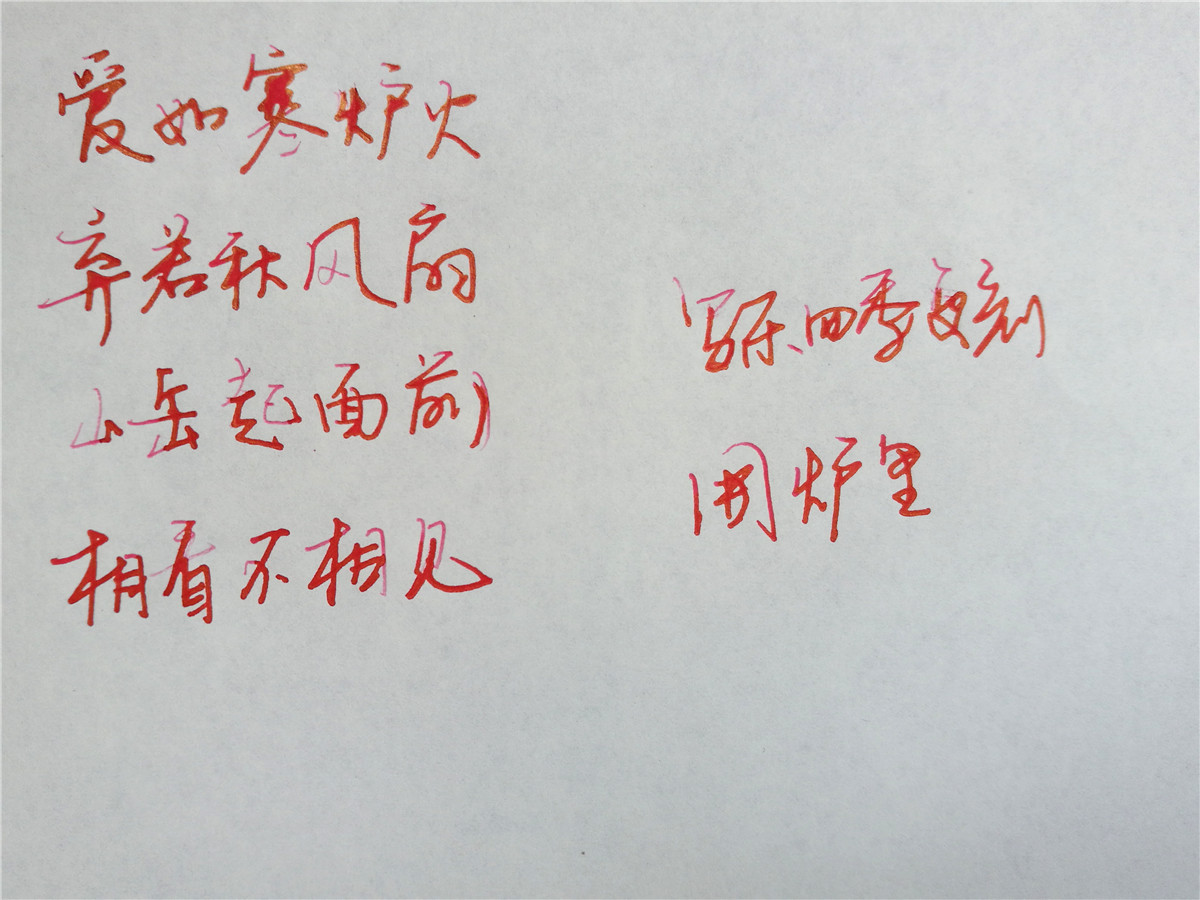 爱如寒炉火
弃若秋风扇
山岳起面前
相看不相见
四季
炉里